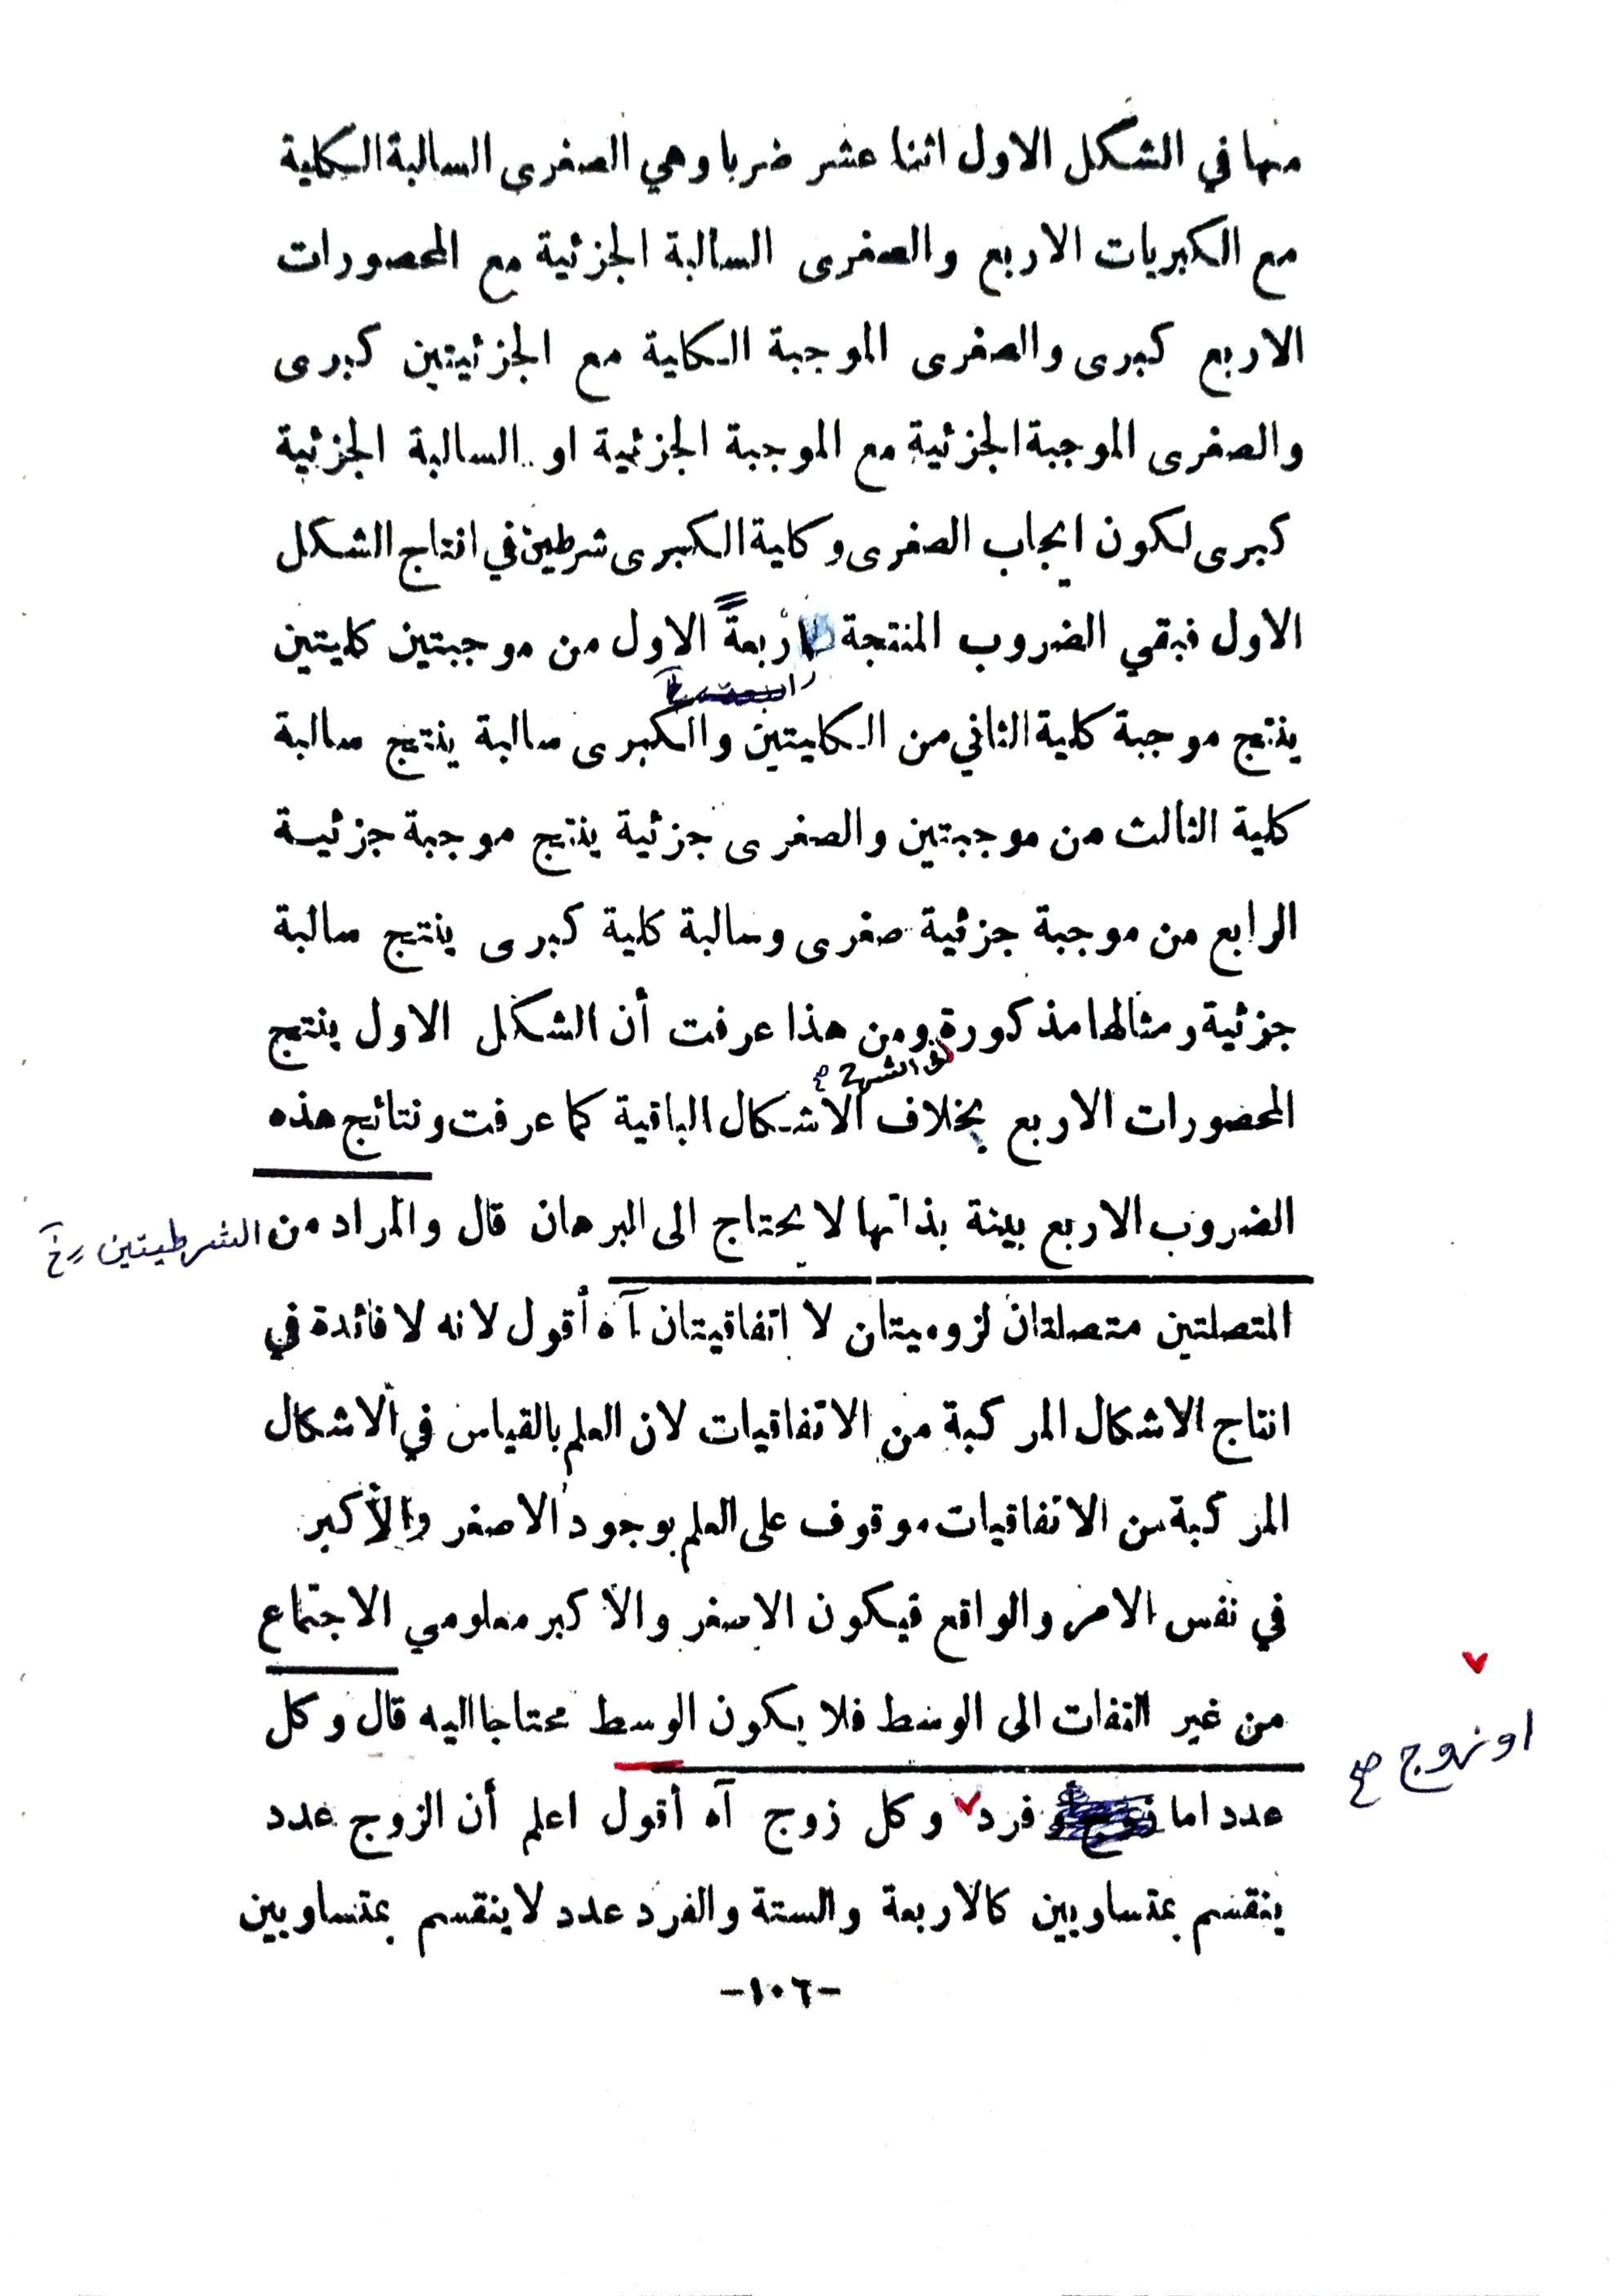 منها في الشكل الاول اثنا عشر ضربا وهي الصغرى السالبة الكلية
مع الكبريات الاربع والصغرى السالبة الجزئية مع المحصورات
الاربع كبرى والصغرى الموجبة الكلية مع الجزئيتين كبرى
والصغرى الموجبة الجزئية مع الموجبة الجزئية او السالبة الجزئية
كبرى لكون ايجاب الصغرى وكلية الكبرى شرطين في انتاج الشكل
الاول فبقي الضروب المنتجة اربعةً الاول من موجبتين كليتين
ينتج موجبة كلية الثاني من الكليتين والكبرى سالبة ينتج سالبة
كلية الثالث من موجبتين والصغرى جزئية ينتج موجبة جزئية
الرابع من موجبة جزئية صغرى وسالبة كلية كبرى ينتج سالبة
جزئية ومثالها مذكورة ومن هذا عرفت أن الشكل الاول ينتج
المحصورات الاربع بخلاف الاشكال الباقية كما عرفت ونتائج هذه
الضروب الاربع بينة بذاتها لا يحتاج الى البرهان قال والمراد من الشرطيتين
المتصلتين متصلتان لزوميتان لا اتفاقيتان آه أقول لانه لا فائدة في
انتاج الاشكال المركبة من الاتفاقيات لان العلم بالقياس في الاشكال
المركبة من الاتفاقيات موقوف على العلم بوجود الاصغر والأكبر
في نفس الامر والواقع فيكون الاصغر والأكبر معلومي الاجتماع
من غير التفات الى الوسط فلا يكون الوسط محتاجا اليه قال وكل
او زوج صح
عدد اما فرد وكل زوج آه أقول اعلم أن الزوج عدد
ينقسم بمتساويين كالاربعة والستة والفرد عدد لا ينقسم بمتساويين
-١٠٦-